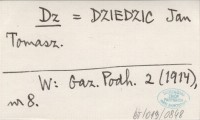 Dz = DZIEDZIC Jan
Tomasz.
W: Gaz. Podh. 2 (1914),
nr 8.